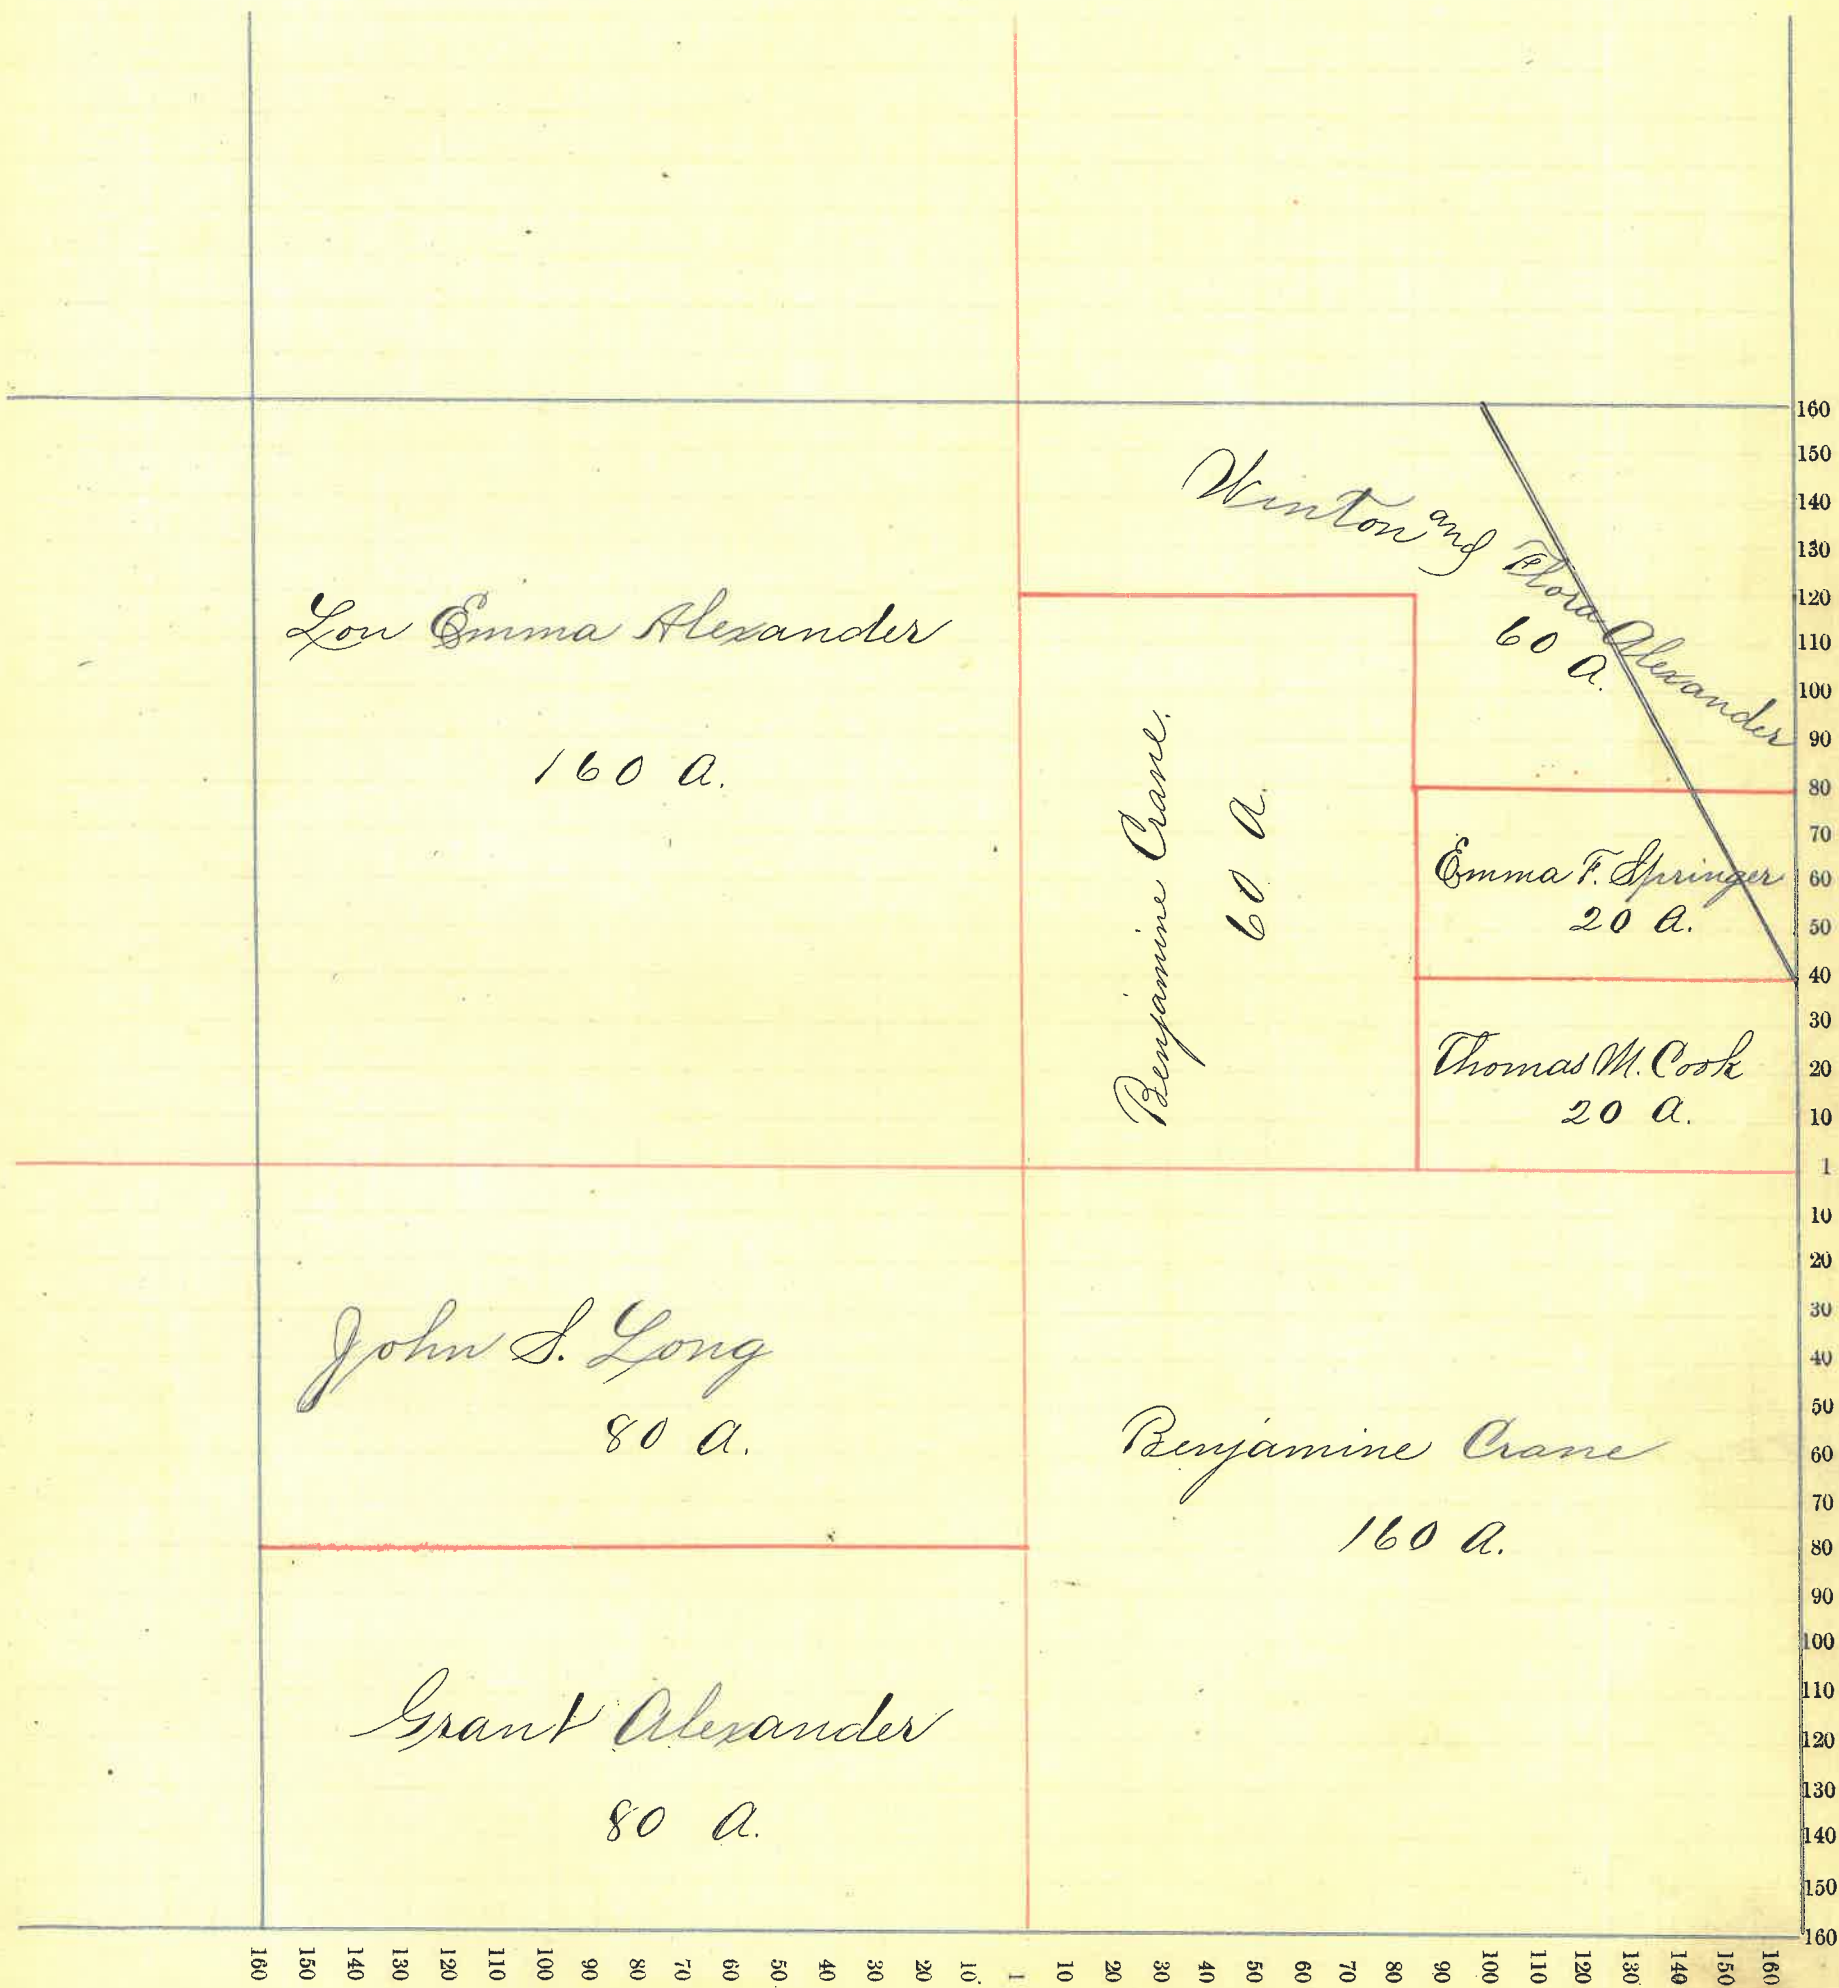 Winton and Flora Alexander
60 A.
Lou Emma Alexander
160 A.
Benjamine Crane.
60 A.
Emma F. Springer
20 A.
Thomas M. Cook
20 A.
John S. Long
80 A.
Benjamine Crane
160 A.
Grant Alexander
80 A.
160
150
140
130
120
110
100
90
80
70
60
50
40
30
20
10
1
10
20
30
40
50
60
70
80
90
100
110
120
130
140
150
160
160 150 140 130 120 110 100 90 80 70 60 50 40 30 20 10 1 10 20 30 40 50 60 70 80 90 100 110 120 130 140 150 160